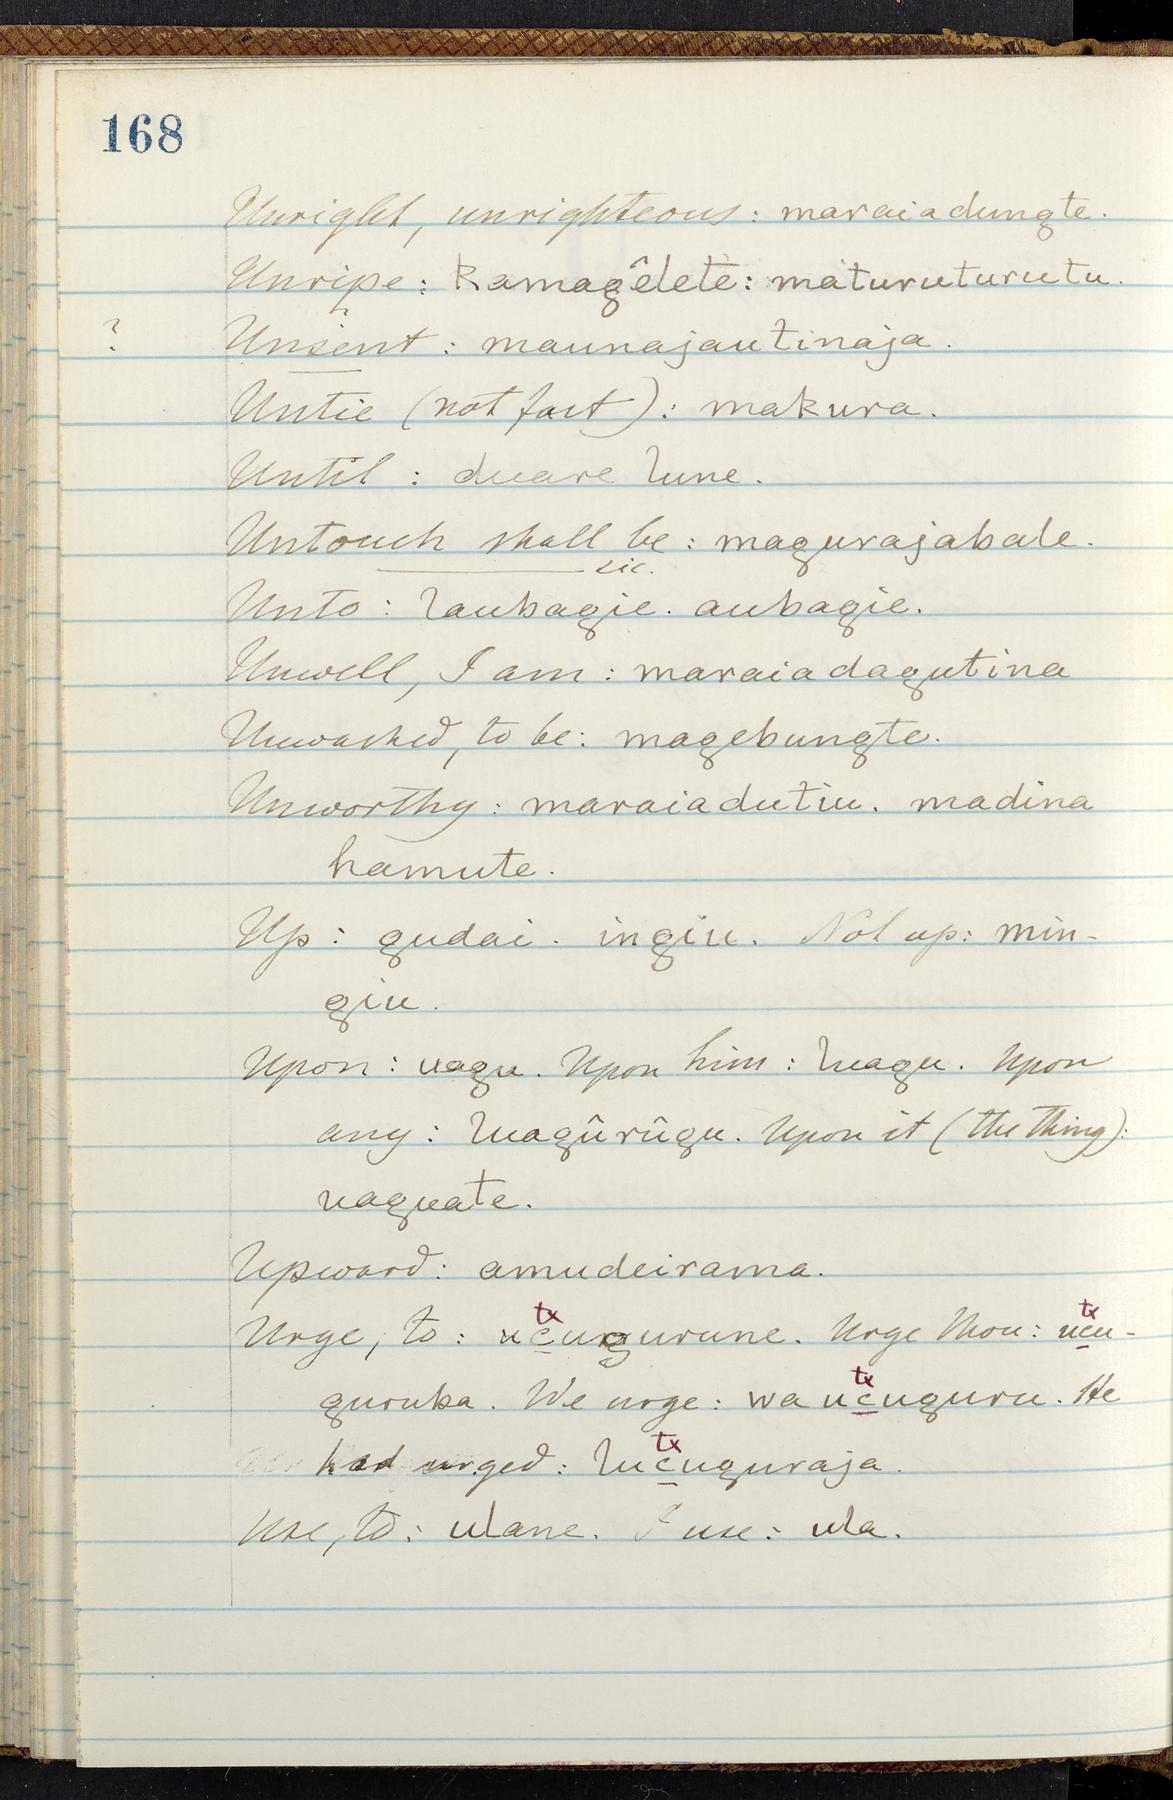 168
Unright, unrighteous: maraiadungte.
Unripe: kamagêlete: maturuturutu.
? Unsent: maunajautinaja.
Untie (not fast): makura.
Until: duare lune.
Untouch shall be: magurajabale.
sic.
Unto: laubagie. aubagie.
Unwell, I am: maraiadagutina
Unwashed, to be: magebungte.
Unworthy: maraiadutiu. madina
hamute.
Up: gudai. ingiu. Not up: min-
giu.
Upon: uagu. Upon him: luagu. Upon
any: luagûrûgu. Upon it (the thing):
uaguate.
Upward: amudeirama.
tx tx
Urge, to: ucugurune. Urge thou: ucu-
tx
guruba. We urge: wa ucuguru. He
tx
had urged: lucuguraja.
Use, to: ulane. I use: ula.